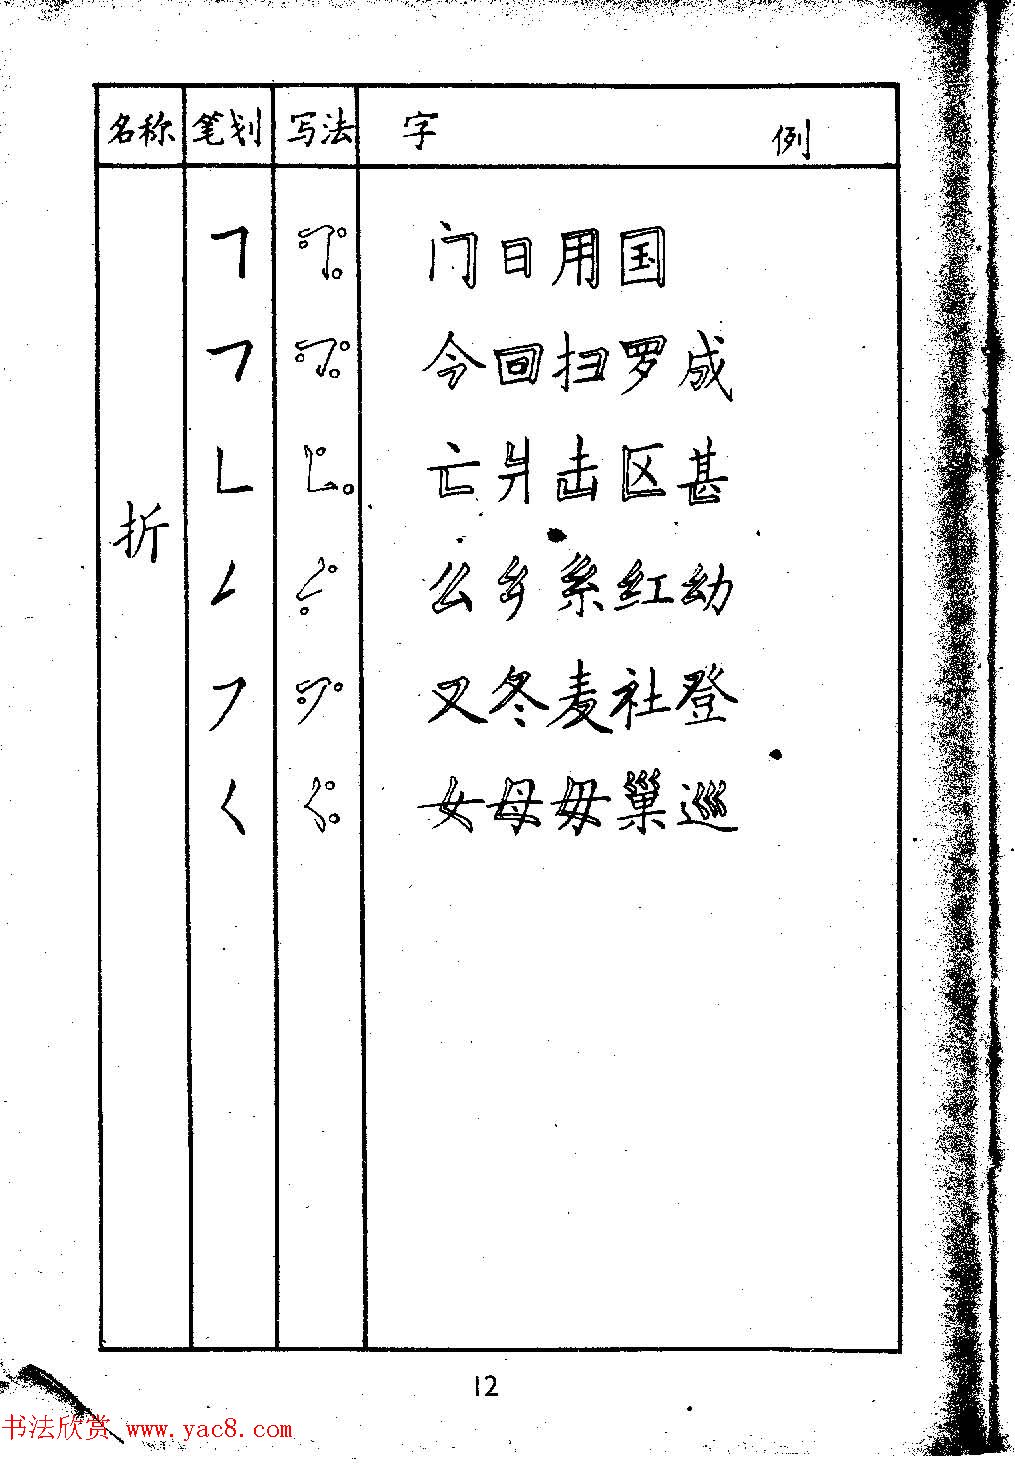 名称 笔划 写法 字 例
㇕ 门日用国
㇕ 今回扫罗成
㇗ 亡爿击区甚
折
㇜ 么乡系红幼
㇇ 又冬麦社登
㇛ 女母毋巢巡
12
书法欣赏 www.yac8.com